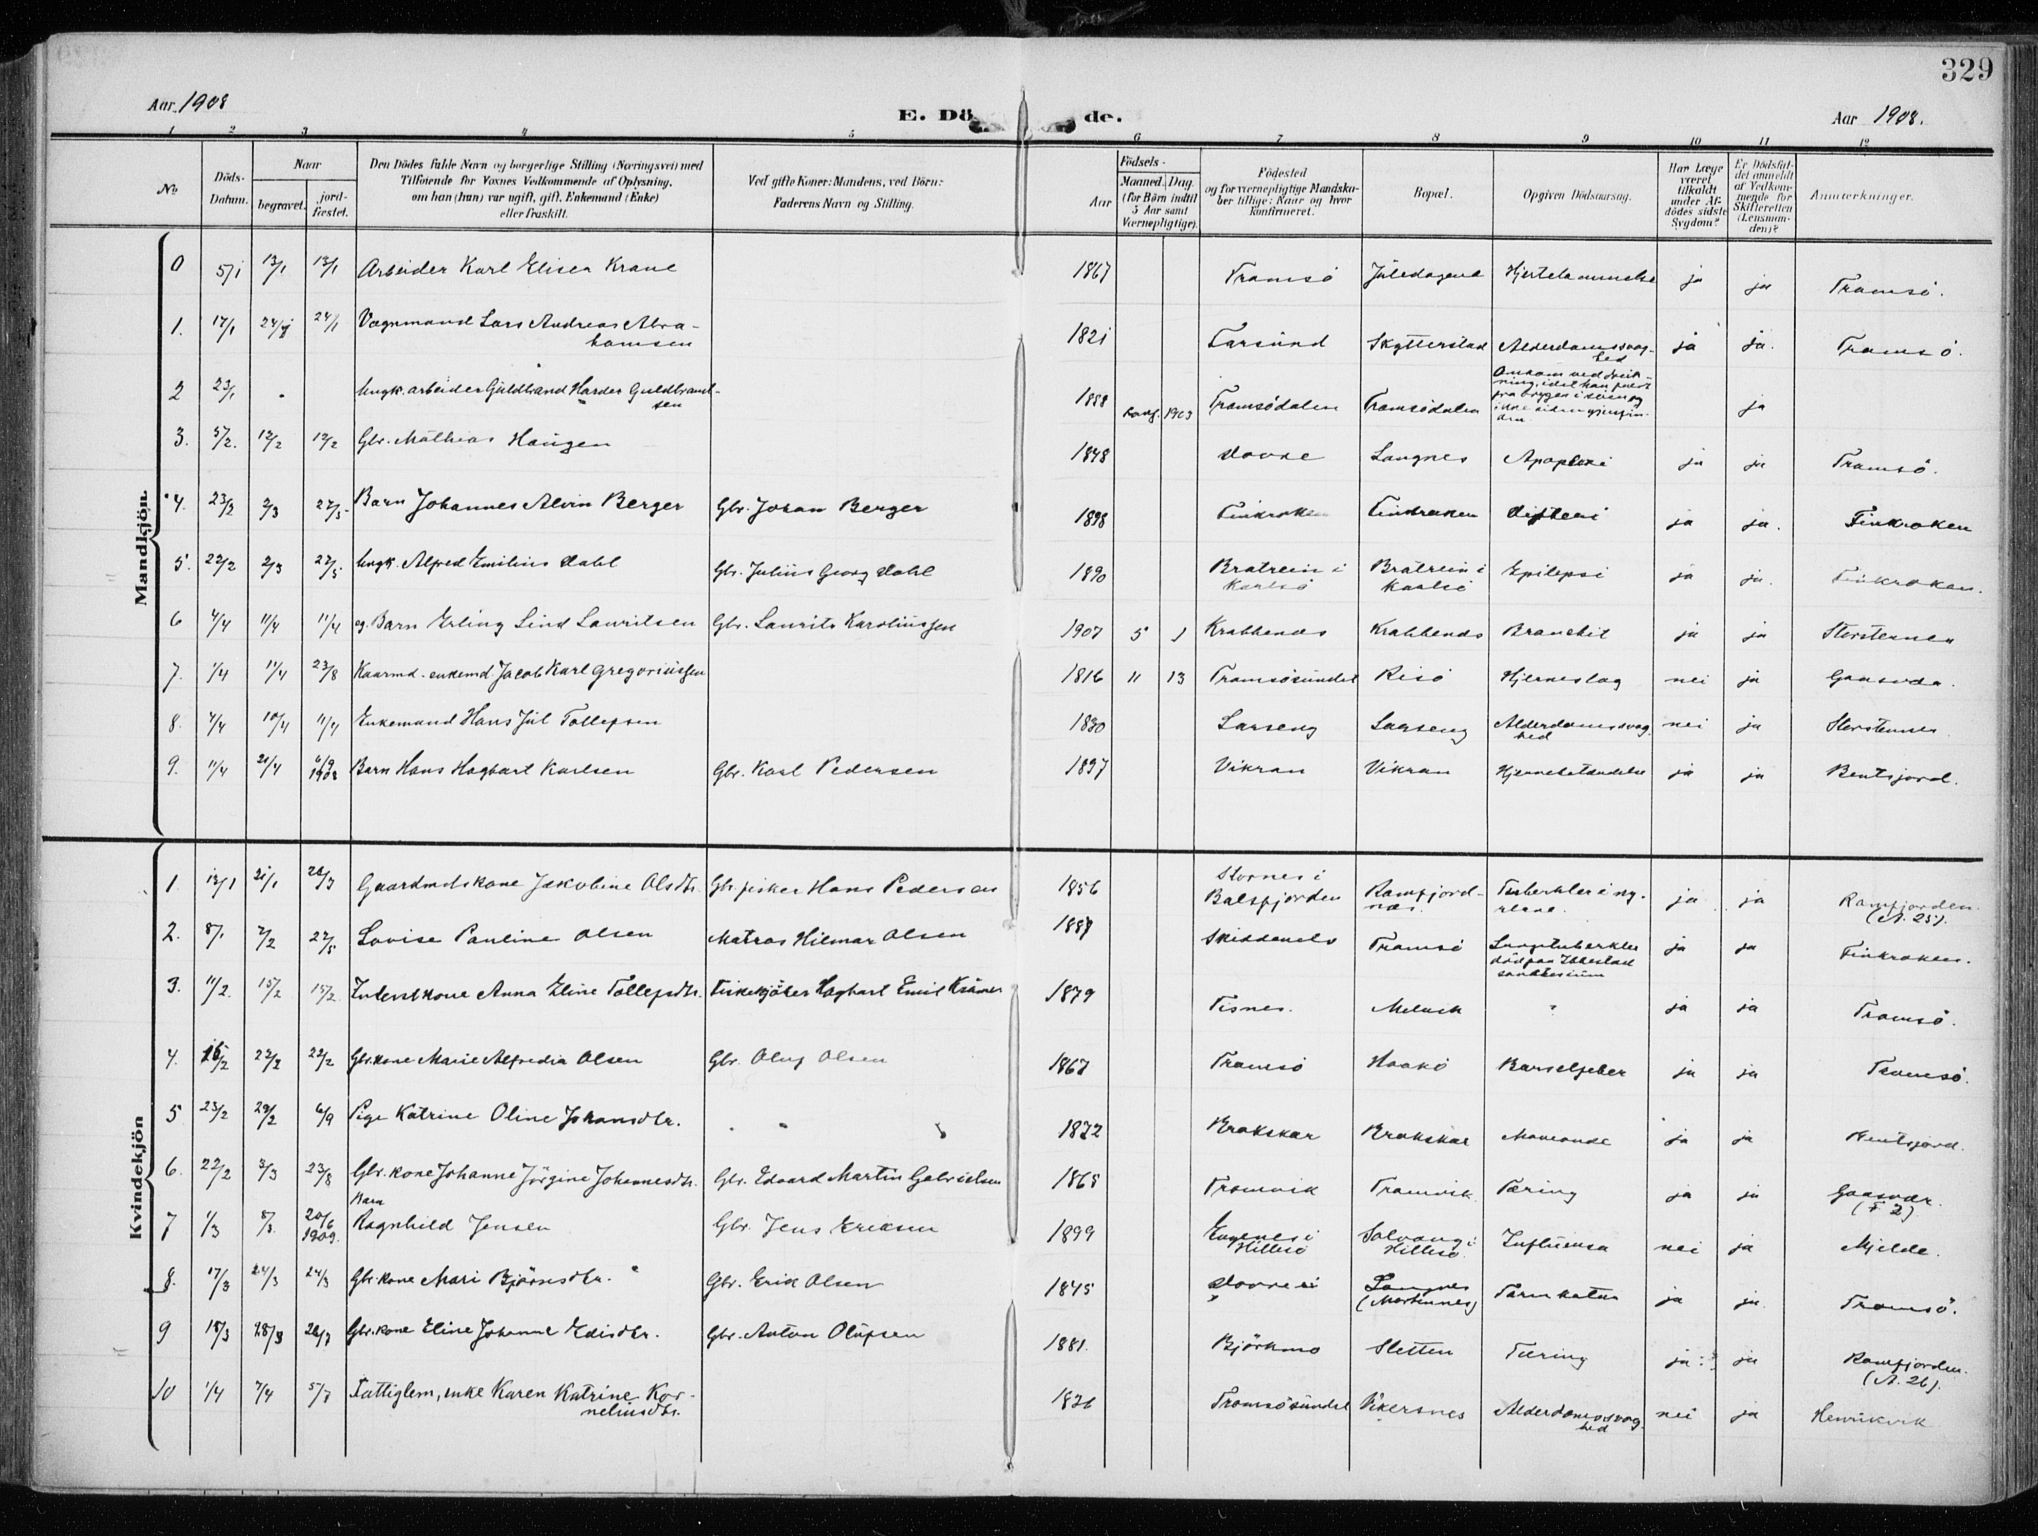 329
Aar 1908
E. Dö de.
Aar 1908.
1 2 3 4 5 6 7 8 9 10 11 12
No.
Döds-
Datum.
Naar
begravet.
jord-
fæstet.
Den Dödes fulde Navn og borgerlige Stilling (Næringsvei) med
Tilföiende for Voxnes Vedkommende af Oplysning,
om han (hun) var ugift, gift, Enkemand (Enke)
eller fraskilt.
Ved gifte Koner: Mandens, ved Börn:
Faderens Navn og Stilling.
Aar
Födsels-
Maaned. Dag.
(for Börn indtil
5 Aar samt
Værnepligtige).
Födested
og for værnepligtige Mandska-
ber tillige: Naar og hvor
konfirmeret.
Bopæl.
Opgiven Dödsaarsag.
Har Læge
været
tilkaldt
under Af-
dödes sidste
Sygdom?
Er Dödsfal-
det anmeldt
af Vedkom-
mende for
Skifteretten
(Lensman-
den)?
Anmærkninger.
Mandkjön.
0 5/1 13/1 13/1 Arbeider Karl Elisea Krane 1867 Tromsö Juledagend Hjertelammelse ja ja Tromsö.
1. 17/1 24/1 24/1 Vognmand Lars Andreas Abra-
hamsen 1821 Farsund Skytterstad Alderdomssvag-
hed ja ja. Tromsö.
2 23/1 Ungk. arbeider Guldbrand Harder Guldbrand-
sen 1888 konf. 1903 Tromsödalen Tromsödalen ja
3. 5/2. 12/2 12/2 Gbr. Mathias Haugen 1848 Dovre Langnes Apoplexi ja ja Tromsö.
4. 23/2 2/3 27/5 Barn Johannes Alvin Berger Gbr. Johan Berger 1898 Finkroken Finkroken Difteri ja ja. Finkroken
5. 22/2 2/3 27/5 Ungk. Alfred Emilius Dahl Gbr. Julius Georg Dahl 1890 Bratrein i
Karlsö Bratrein i
Karlsö Epilepsi ja ja. Finkroken.
6 4/4 11/4 11/4 eg. Barn Erling Lind Lauritsen Gbr. Laurits Karoliussen 1907 5 1 Krabbenes Krabbenes Bronchit ja ja Storstennes
7. 1/4 11/4 23/8 Kaarmd. enkemd. Jacob Karl Gregoriussen 1816 11 13 Tromsösundet Risö Hjerneslag nei ja Gaasvær.
8. 4/4 10/4 11/4 Enkemand Hans Jul Tollefsen 1830 Larseng Larseng Alderdomssvag-
hed nei ja Storstennes.
9. 11/4 21/4 6/9
1908 Barn Hans Hagbart Karlsen Gbr. Karl Pedersen 1897 Vikran Vikran Hjernebetændelse ja ja Bentsjord.
Kvindekjön
1. 12/1 21/1 26/7 Gaardmdskone Jakobine Olsdtr. Gbr. fisker Hans Pedersen 1856 Stornes i
Balsfjorden Ramfjord-
næs. Tuberkler i ryg-
ja ja Ramfjorden.
(N. 25).
2. 8/1 2/2 27/5 Lovise Pauline Olsen Matros Hilmar Olsen 1887 Skiddenelv Tromsö Lungetuberkler
död paa Ibbestad
sanatorium ja ja Finkroken.
3. 11/2. 15/2 15/2 Inderstkone Anna Eline Tollefsdtr. Fiskekjöber Hagbart Emil Krämer 1879 Tisnes. Melvik " ja ja Tromsö.
4. 16/2 22/2 22/2 Gbrkone Marie Alfredia Olsen Gbr. Oluf Olsen 1867 Tromsö Haakö Barselfeber ja ja Tromsö.
5 23/2 29/2 6/9 Pige Katrine Oline Johansdtr. 1872 Brokskar Brokskar Mavesonde ja ja Bentsjord.
6. 22/2 3/3 23/8 Gbr. kone Johanne Jörgine Johannesdtr. Gbr. Edvard Martin Gabrielsen 1868 Tromvik Tromvik Tæring ja ja Gaasvær.
(F 2)
7 1/3 8/3. 20/6
1909. Barn
Ragnhild Jensen Gbr. Jens Eriksen 1899 Engenes i
Hillesö Solvang i
Hillesö Influensa nei ja Mjelde.
8. 17/3 24/3 24/3 Gbr. kone Mari Björnsdtr. Gbr. Erik Olsen 1845 Dovre Langnes
(Martinnes) Tarmkatar ja ja Tromsö.
9 18/3 28/3 26/7 Gbr. kone Eline Johanne Edisdtr. Gbr. Anton Olufsen 1881. Björkmo Sletten Tæring ja ja Ramfjorden.
(N. 26).
10 1/4 7/4 5/7 Fattiglem, enke Karen Katrine Kor-
neliusdtr. 1826 Tromsösundet Vikersnes Alderdomssvag-
hed nei ja Henrikvik